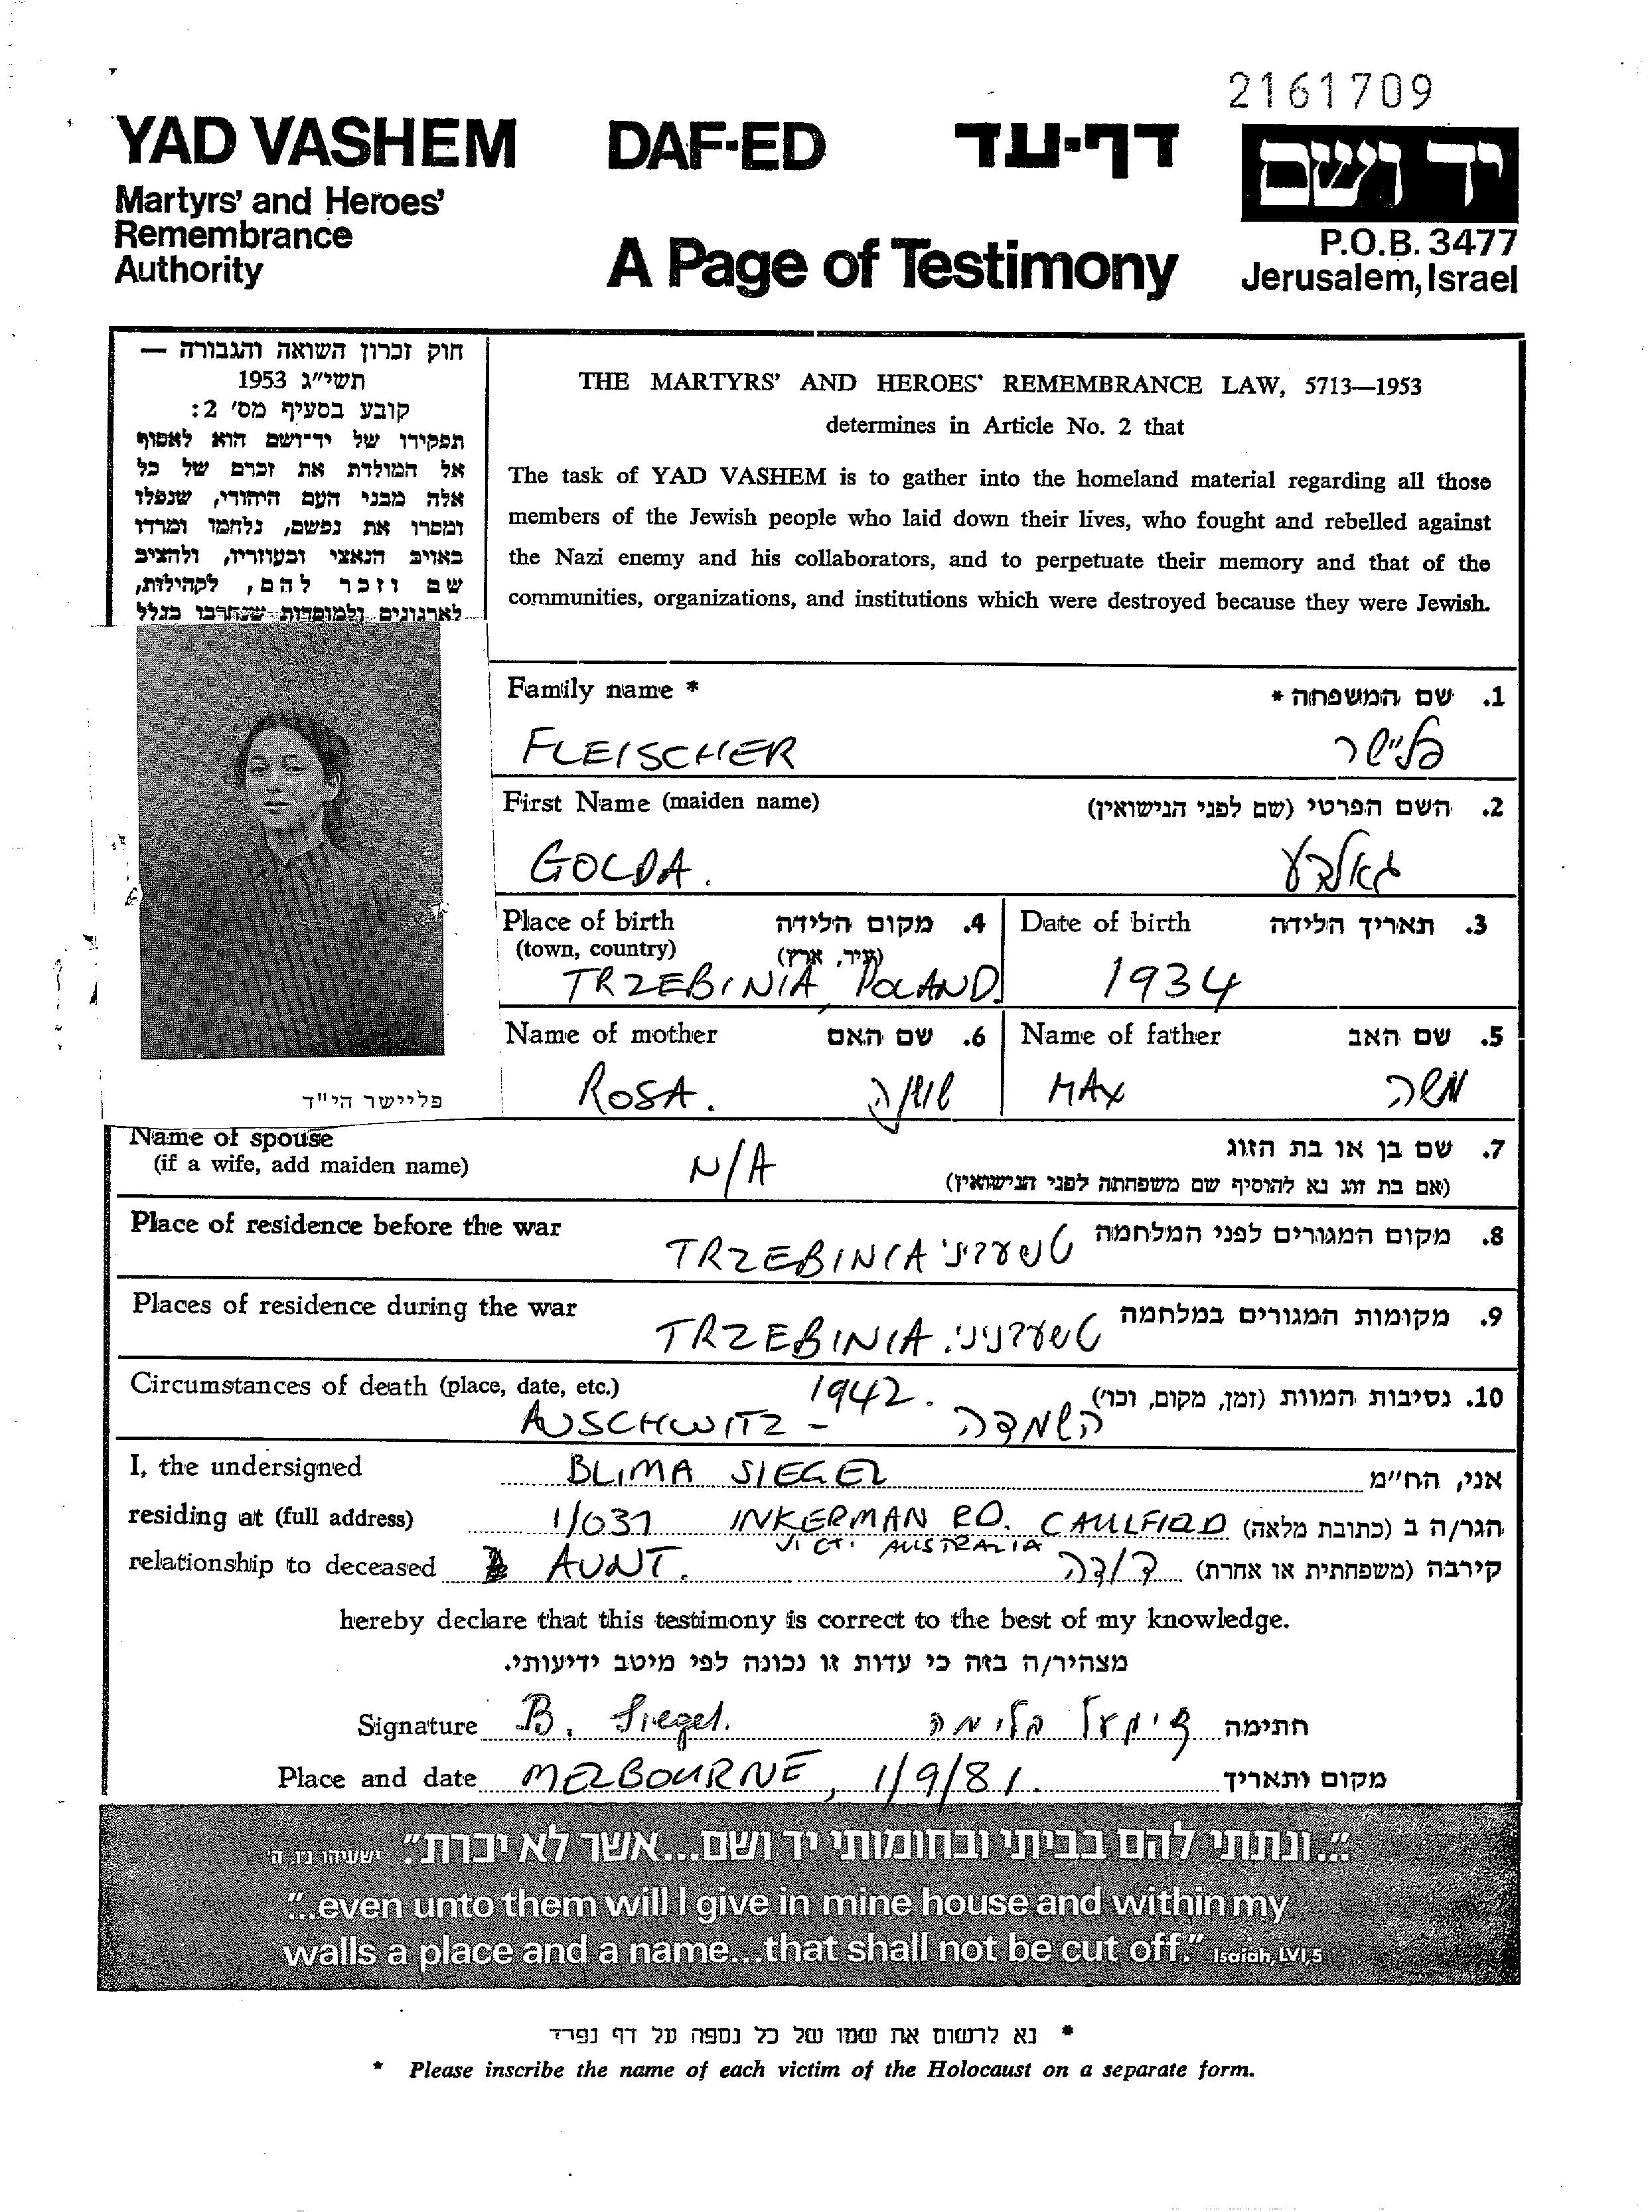 2161709
YAD VASHEM
Martyrs' and Heroes'
Remembrance
Authority
DAF-ED דף-עד
A Page of Testimony
יד ושם
P.O.B. 3477
Jerusalem, Israel
חוק זכרון השואה והגבורה —
תשי"ג 1953
קובע בסעיף מס' 2:
תפקידו של יד-ושם הוא לאסוף
אל המולדת את זכרם של כל
אלה מבני העם היהודי, שנפלו
ומסרו את נפשם, נלחמו ומרדו
באויב הנאצי ובעוזריו, ולהציב
שם וזכר להם, לקהילות,
לארגונים ולמוסדות שנחרבו בגלל
THE MARTYRS' AND HEROES' REMEMBRANCE LAW, 5713—1953
determines in Article No. 2 that
The task of YAD VASHEM is to gather into the homeland material regarding all those
members of the Jewish people who laid down their lives, who fought and rebelled against
the Nazi enemy and his collaborators, and to perpetuate their memory and that of the
communities, organizations, and institutions which were destroyed because they were Jewish.
פליישר הי"ד
Family name * 1. שם המשפחה *
FLEISCHER פליישר
First Name (maiden name) 2. השם הפרטי (שם לפני הנישואין)
GOLDA. גאלדע
Place of birth 4. מקום הלידה
(town, country) (עיר, ארץ)
TRZEBINIA, POLAND.
Date of birth 3. תאריך הלידה
1934
Name of mother 6. שם האם
ROSA. שושנה
Name of father 5. שם האב
MAX משה
Name of spouse 7. שם בן או בת הזוג
(if a wife, add maiden name) N/A (אם בת זוג נא להוסיף שם משפחתה לפני הנישואין)
Place of residence before the war 8. מקום המגורים לפני המלחמה
TRZEBINIA
Places of residence during the war 9. מקומות המגורים במלחמה
TRZEBINIA.
Circumstances of death (place, date, etc.) 1942. 10. נסיבות המוות (זמן, מקום, וכו')
AUSCHWITZ - השמדה
I, the undersigned BLIMA SIEGEL אני, הח"מ
residing at (full address) 1/631 INKERMAN RD. CAULFIELD הגר/ה ב (כתובת מלאה)
VICT. AUSTRALIA
relationship to deceased AUNT. דודה קירבה (משפחתית או אחרת)
hereby declare that this testimony is correct to the best of my knowledge.
מצהיר/ה בזה כי עדות זו נכונה לפי מיטב ידיעותי.
Signature B. Siegel. זיגעל בלימה חתימה
Place and date MELBOURNE, 1/9/81. מקום ותאריך
"...ונתתי להם בביתי ובחומותי יד ושם...אשר לא יכרת." ישעיהו נ"ו ה'
"...even unto them will I give in mine house and within my
walls a place and a name...that shall not be cut off." Isaiah, LVI,5
* נא לרשום את שמו של כל נספה על דף נפרד
* Please inscribe the name of each victim of the Holocaust on a separate form.